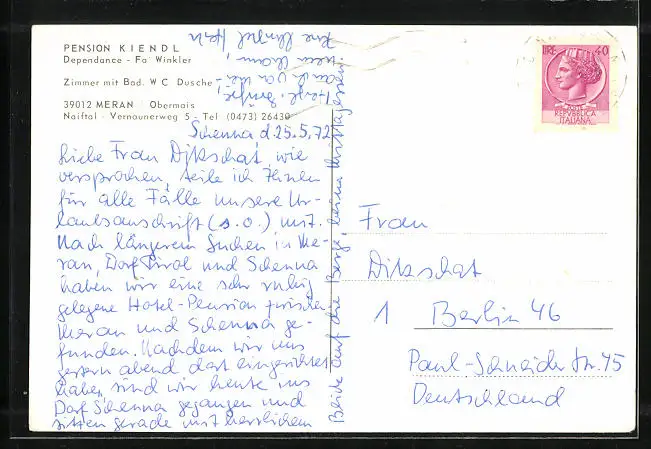 PENSION KIENDL
Dependance - Fa. Winkler
Zimmer mit Bad. W C Dusche
39012 MERAN Obermais
Naiftal - Vernauerweg 5 - Tel (0473) 26430
Schenna, d. 25.5.72
Liebe Frau Ditschat, wie
versprochen, teile ich Ihnen
für alle Fälle unsere Ur-
laubsanschrift (s.o.) mit.
Nach längerem Suchen in Me-
ran, Dorf Tirol und Schenna
haben wir eine sehr ruhig
gelegene Hotel-Pension zwischen
Meran und Schenna ge-
funden. Nachdem wir uns
gestern abend dort eingerichtet
haben, sind wir heute ins
Dorf Schenna gegangen und
sitzen gerade mit herrlichem
Blick auf die Berge, beim Mittagessen.
Herzl. Grüße,
auch von
Ihre
LIRE 40
POSTE
REPVBBLICA
ITALIANA
Frau
Ditschat
1 Berlin 46
Paul-Schneider Str. 45
Deutschland